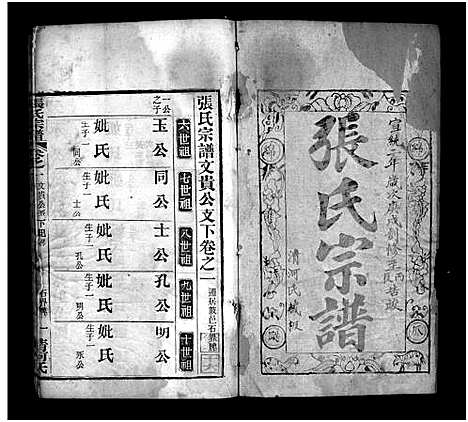 宣統二年歲次庚戌
張氏宗譜
清河氏
張氏宗譜文貴公支下卷之一
六世祖
七世祖
八世祖
九世祖
十世祖
一公之子
玉公
妣氏
生子一
同公
同公
妣氏
生子一
士公
士公
妣氏
生子一
孔公
孔公
妣氏
生子一
明公
明公
妣氏
生子一
永公
張氏宗譜